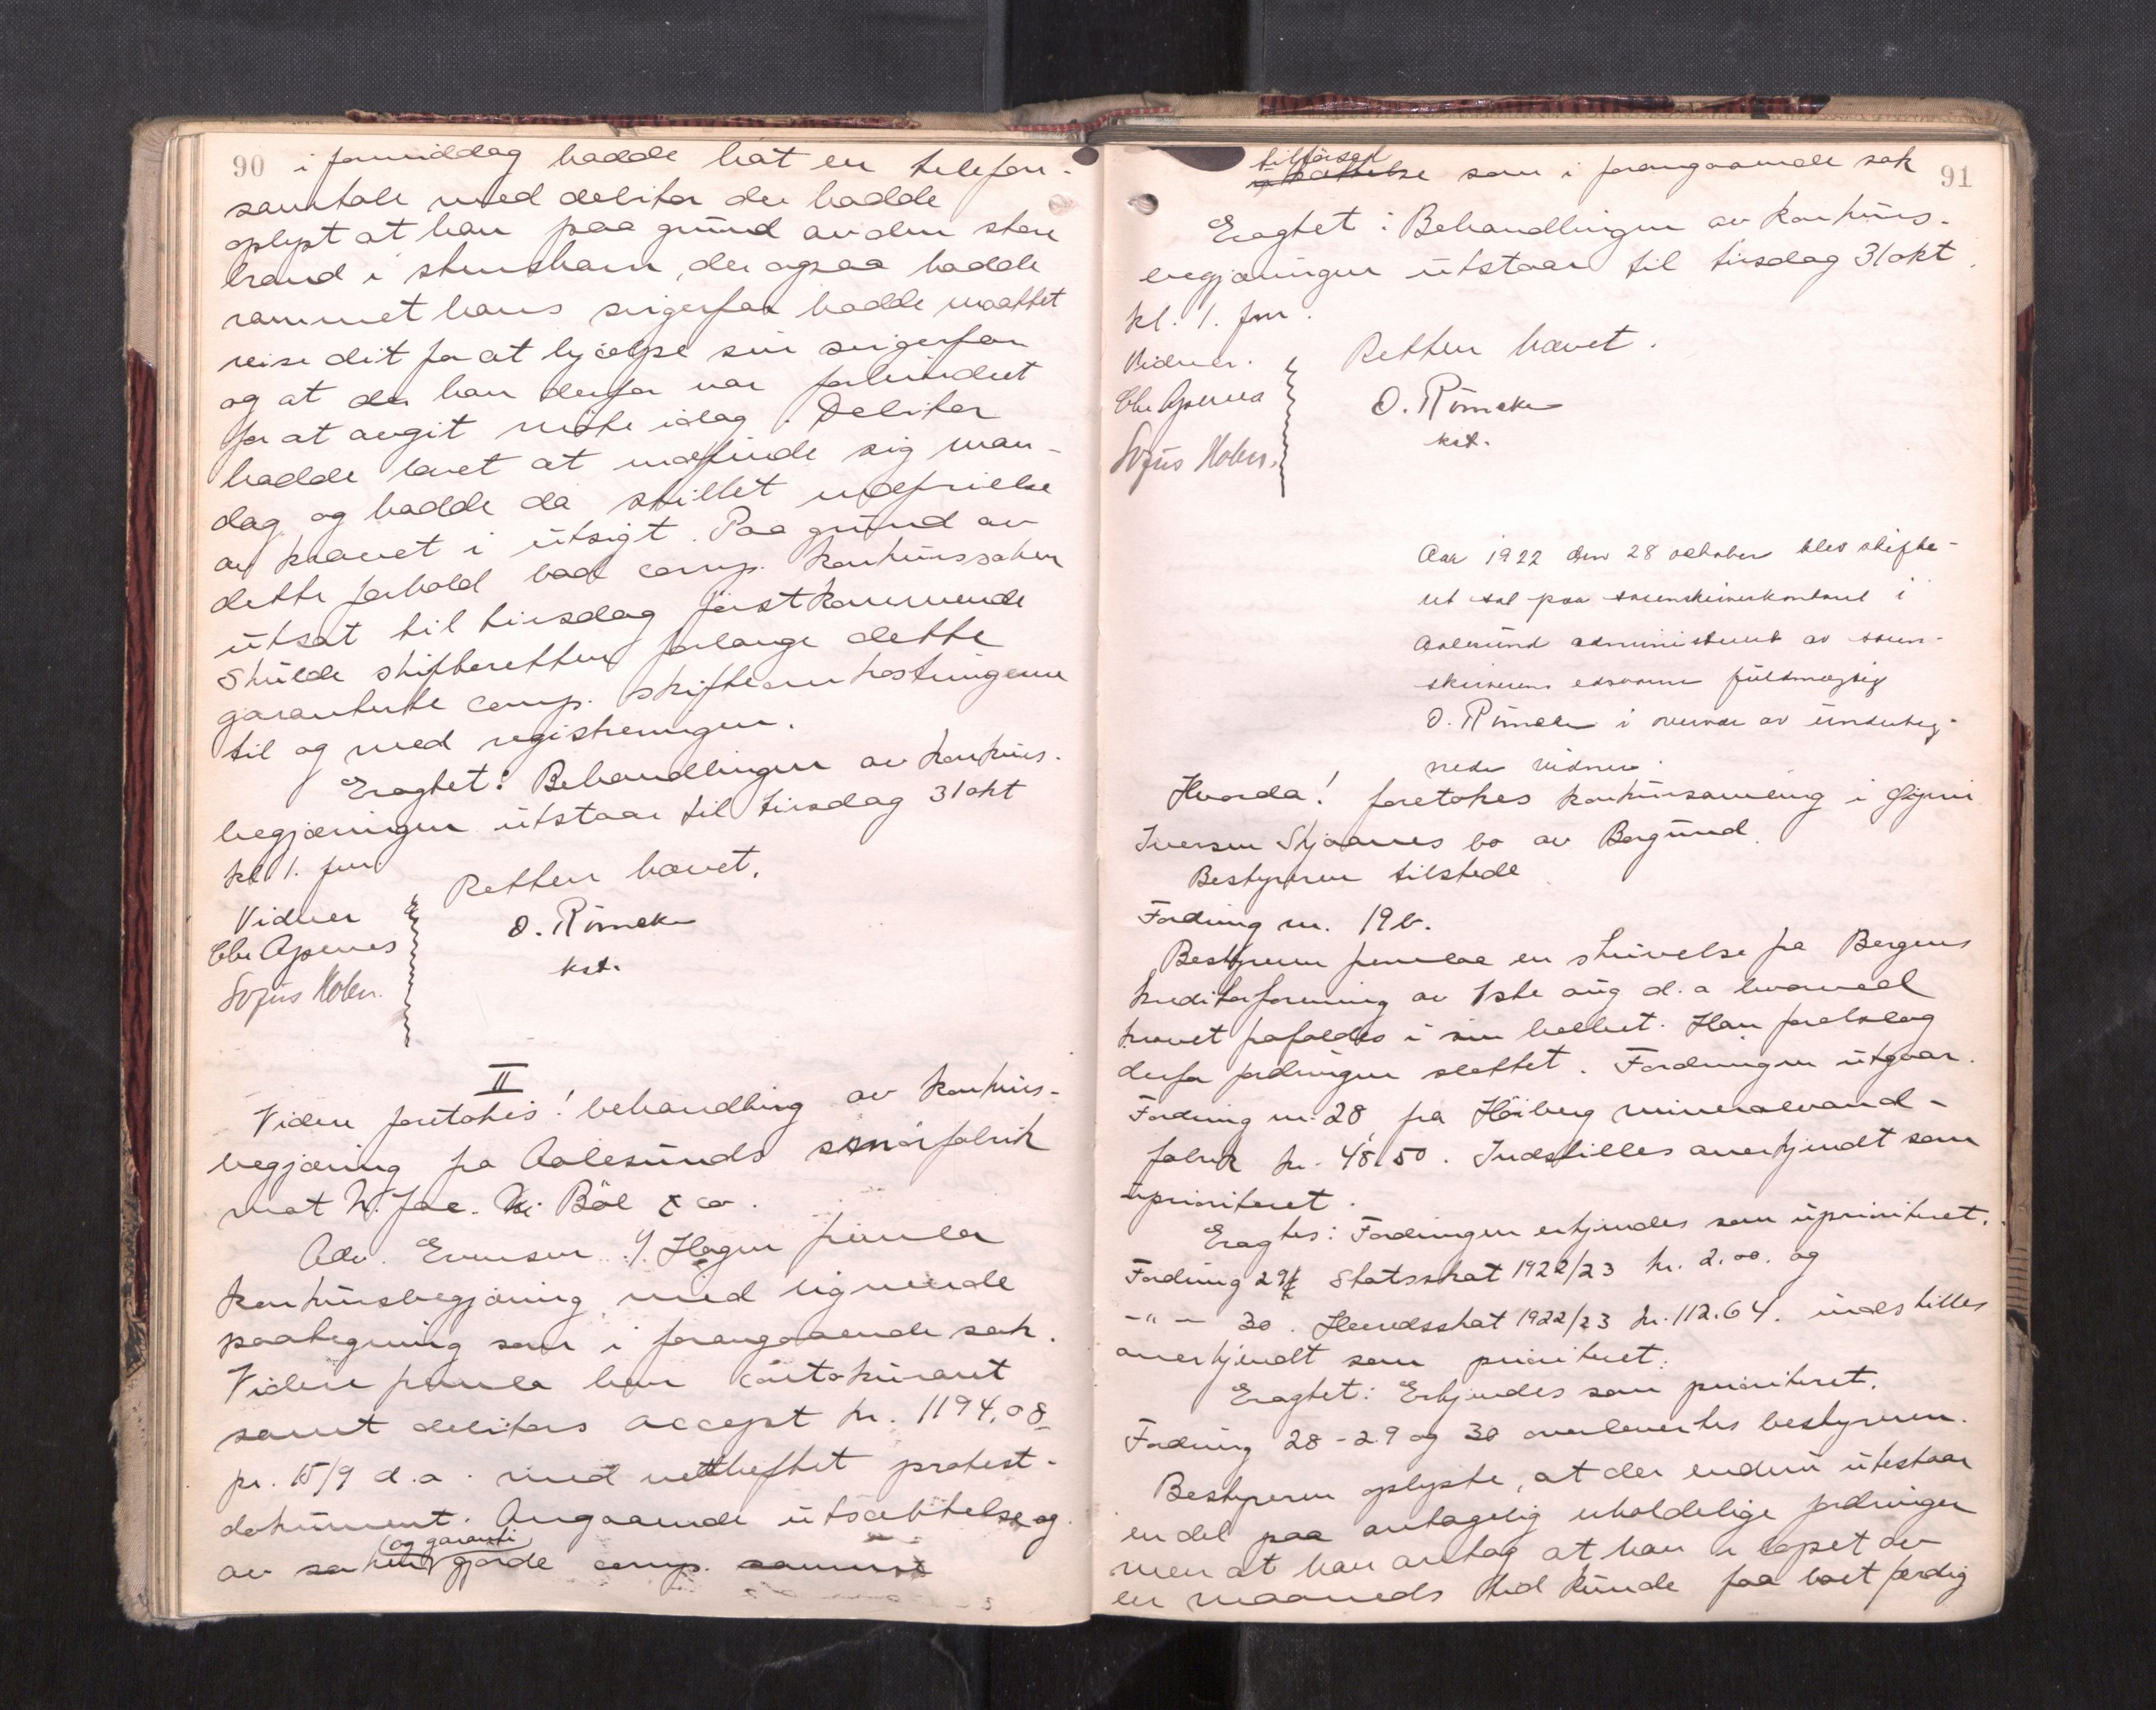 90
i formiddag hadde hat en telefon-
samtale med debitor der hadde
oplyst at han paa grund av den store
brand i Stenshavn, der ogsaa hadde
rammet hans svigerfar hadde maattet
reise dit for at hjælpe sin svigerfar
og at der han derfor var forhindret
for at avgit møte idag. Debitor
hadde lovet at indfinde sig man-
dag og hadde da stillet indfrielse
av kravet i utsigt. Paa grund av
dette forhold bad comp. konkurssaken
utsat til tirsdag førstkommende
Skulde skifteretten forlange dette
garanterte comp. skifteomkostningerne
til og med registreringen.
Eragtet: Behandlingen av konkurs-
begjæringen utstaar til tirsdag 31 okt
kl 1. fm.
Retten hævet.
Vidner
Chr Apenes
Sofus Holm.
O. Römcke
kst.
II
Videre foretokes! behandling av konkurs-
begjæring fra Aalesunds smörfabrik
mot N. Jac. Böe & co.
Adv. Evensen v/ Hagen fremla
konkursbegjæring med lignende
paategning som i forangaaende sak.
Videre fremla han contokurant
samt debitors accept kr. 1194,08
pr. 15/9 d.a. med vedheftet protest-
dokument. Angaaende utsættelse og
og garanti
av saken gjorde comp. samme
91
tilförsel
og pättelse som i forangaaende sak
Eragtet: Behandlingen av konkurs-
begjæringen utstaar til tirsdag 31 okt.
kl. 1. fm.
Retten hævet.
Vidner.
Chr Apenes
Sofus Holm.
O. Römcke
kst.
Aar 1922 den 28 oktober blev skifte-
ret sat paa sorenskriverkontoret i
Aalesund administrert av soren-
skriverens edsvorne fuldmægtig
O. Römcke i overvær av underteg-
nede vidner.
Hvorda! foretokes konkurssamling i
Iversen Skjaanes bo av Borgund.
Bestyreren tilstede
Fordring nr. 19b.
Bestyreren fremlae en skrivelse fra Bergens
kreditorforening av 1ste aug d.a hvorved
kravet frafaldes i sin helhet. Han foreslog
derfor fordringen slettet. Fordringen utgaar.
Fordring nr. 28, fra Höiberg mineralvand-
fabrik kr. 48.50. Indstilles anerkjendt som
uprioritert.
Eragtes: Fordringen erkjendes som uprioriteret.
Fordring 29 Statsskat 1922/23 kr. 2.00. og
-"- 30. Herredsskat 1922/23 kr. 112.64. indstilles
anerkjendt som prioriteret.
Eragtet: Erkjendes som prioriteret.
Fordring 28-29 og 30 overlevertes bestyreren.
Bestyreren oplyste, at der endnu utestaar
endel paa antagelig uholdelige fordringer
men at han antog at han i løpet av
en maaneds tid kunde faa boet færdig